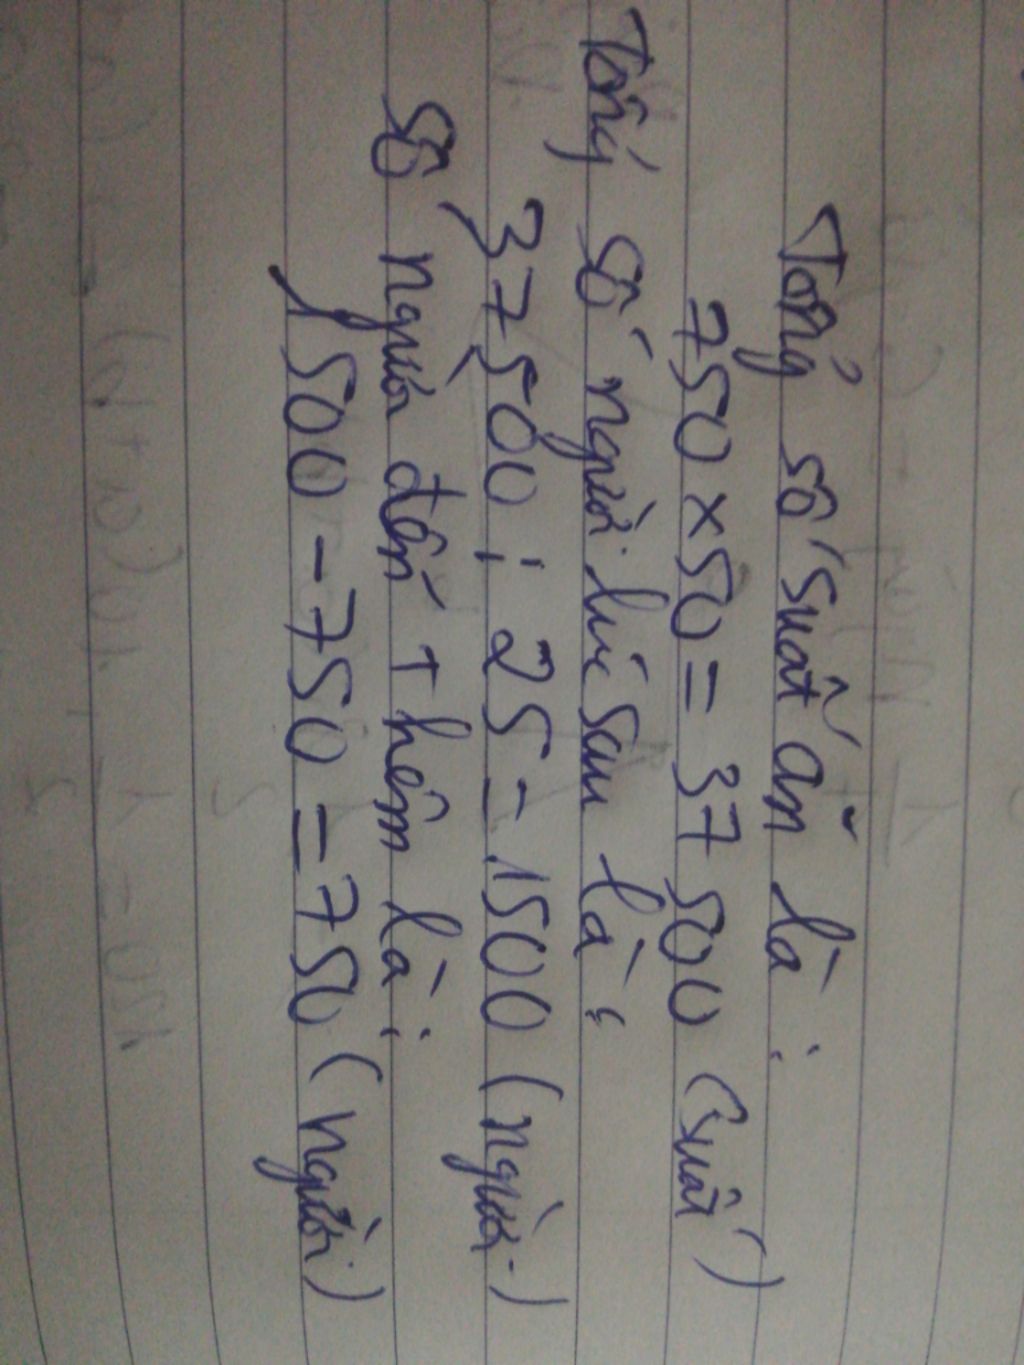 Tổng số suất ăn là:
750 x 50 = 37500 (suất)
Tổng số người lúc sau là:
37500 : 25 = 1500 (người)
Số người đến thêm là:
1500 - 750 = 750 (người)